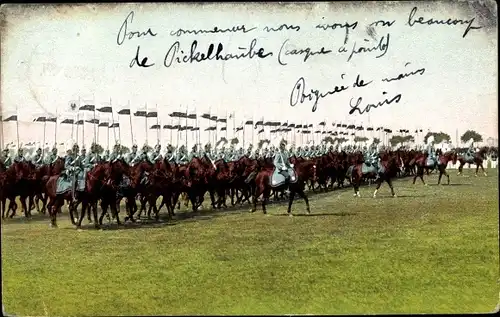 Pour commencer nous irons voir beaucoup
de Pickelhaube (casque à pointe)
Poignée de mains
Louis